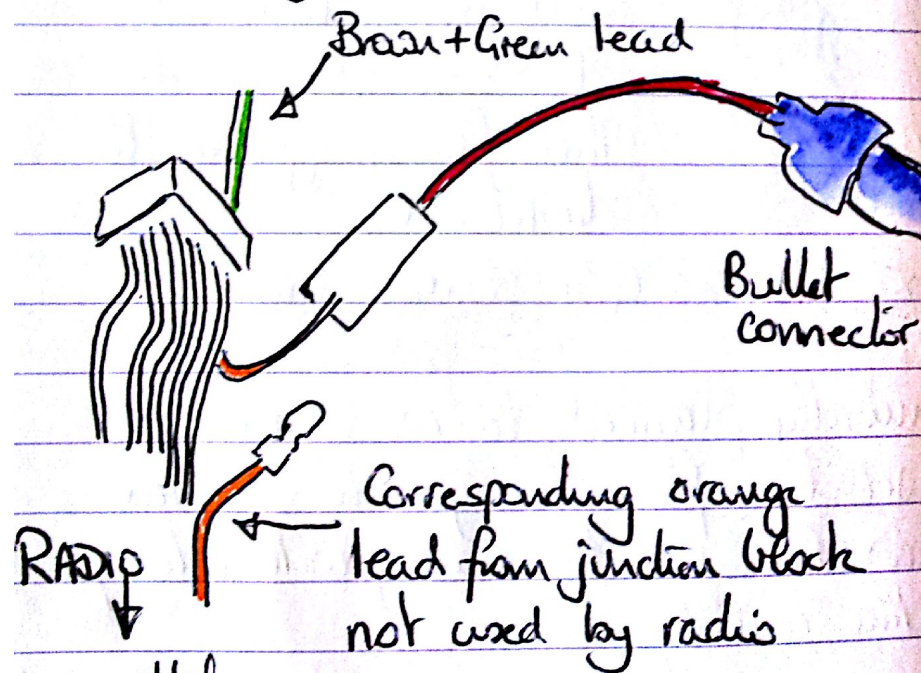 Brown+Green lead
Bullet
connector
Corresponding orange
lead from junction block
not used by radio
RADIO